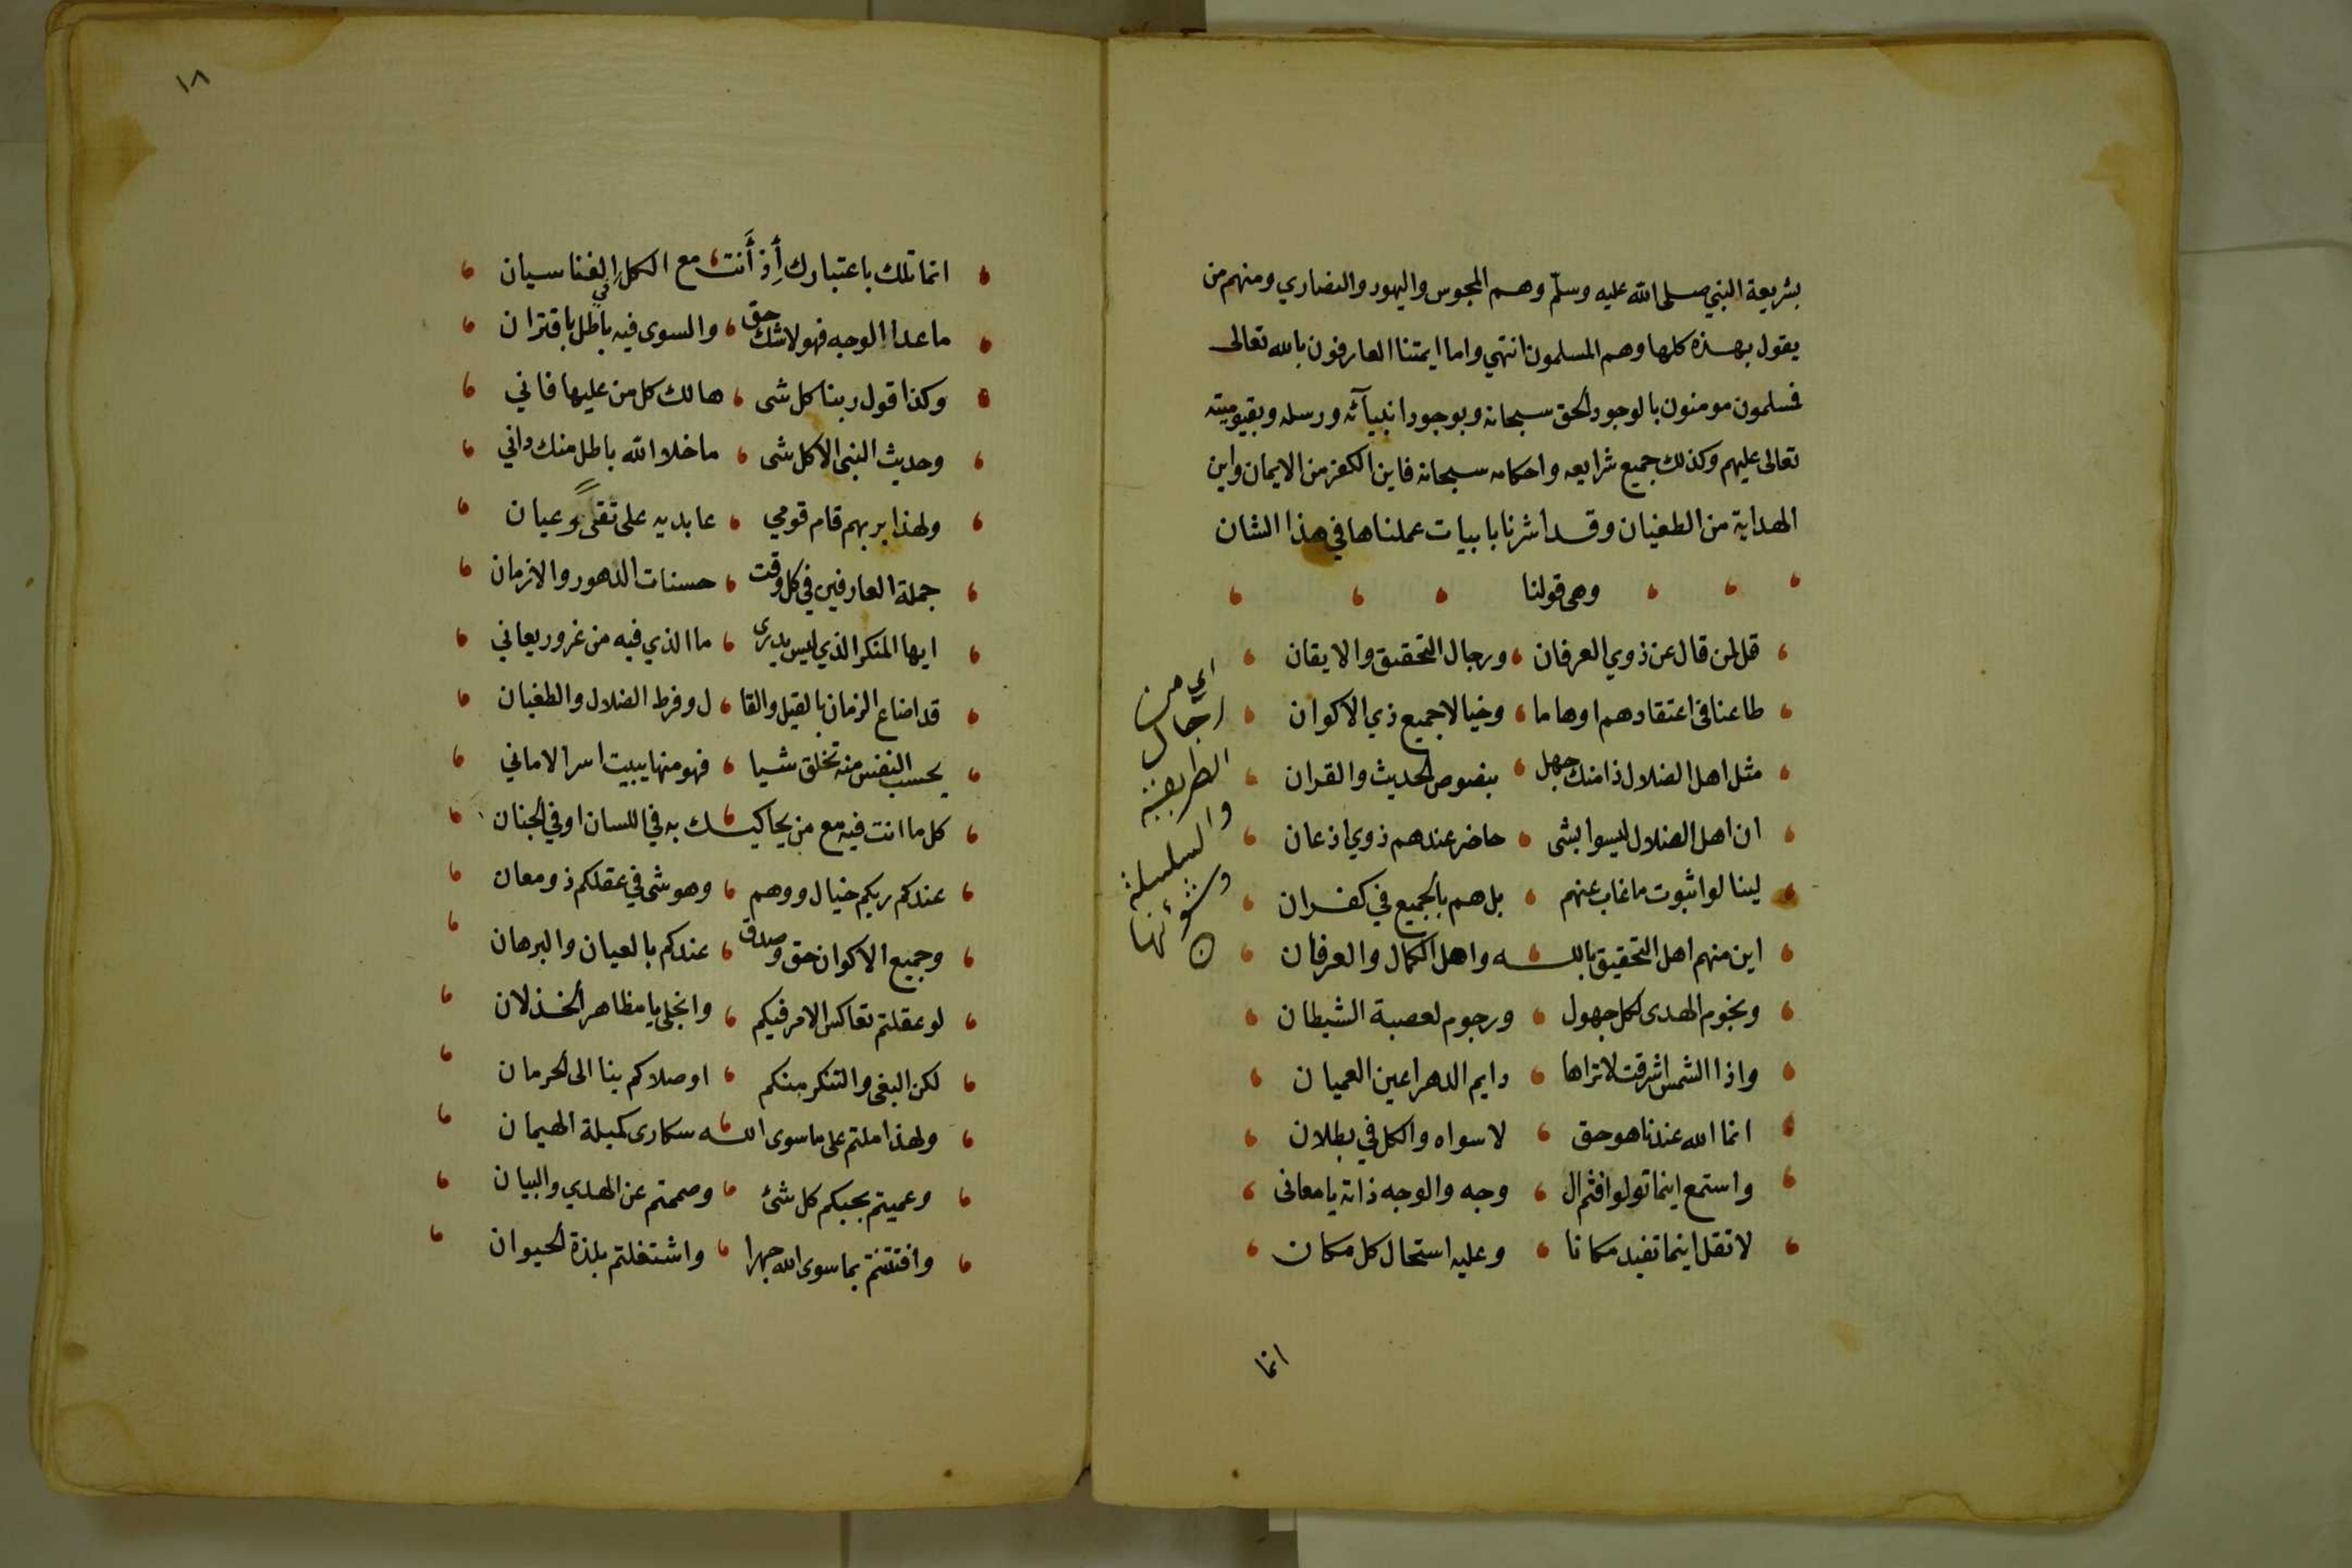 بشريعة النبي صلى الله عليه وسلّم وهم المجوس واليهود والنصاري ومنهم من
يقول بهذه كلها وهم المسلمون انتهي واما ايمتنا العارفون بالله تعالى
فمسلمون مومنون بالوجود الحق سبحانه وبوجود انبيآئه ورسله وبقيوميته
تعالى عليهم وكذلك جميع شرايعه واحكامه سبحانه فاين الكفر من الايمان واين
الهداية من الطغيان وقد اشرنا بابيات عملناها في هذا الشان
وهى قولنا
قل لمن قال عن ذوي العرفان ، ورجال التحقيق والايقان
طاعنا فى اعتقادهم اوهاما ، وخيالا جميع ذي الاكوان
مثل اهل الضلال ذا منك جهل ، بنصوص الحديث والقران
ان اهل الضلال ليسوا بشى ، حاضر عندهم ذوي اذعان
لينالوا ثبوت ما غاب عنهم ، بل هم بالجميع في كفران
اين منهم اهل التحقيق بالله واهل الكمال والعرفان
ونجوم الهدى لكل جهول ، ورجوم لعصبة الشيطان
واذا الشمس اشرقت لا تراها ، دايم الدهر اعين العميان
انما الله عندنا هو حق ، لا سواه والكل في بطلان
واستمع اينما تولوا فثم ال ، وجه والوجه ذاته يا معانى
لا تقل اينما تفيد مكانا ، وعليه استحال كل مكان
انما
اي من
رجال
الطريقة
والسلسلة
وشؤنها
١٨
انما تلك باعتبارك أِذ أَنت مع الكل في الفنا سيان
ما عدا الوجه فهو لا شك حق ، والسوى فيه باطل باقتران
وكذا قول ربنا كل شى ، هالك كل من عليها فاني
وحديث النبى الا كل شى ، ما خلا الله باطل منك داني
ولهذا بربهم قام قومي ، عابديه على تقىً وعيان
جملة العارفين في كل وقت ، حسنات الدهور والازمان
ايها المنكر الذي ليس يدرى ، ما الذي فيه من غرور يعاني
قد اضاع الزمان بالقيل والقا ، ل وفرط الضلال والطغيان
يحسب النفس منه تخلق شيا ، فهو منها يبيت اسر الاماني
كل ما انت فيه مع من يحاكيك به في اللسان او في الجنان
عندكم ربكم خيال ووهم ، وهو شى في عقلكم ذو معان
وجميع الاكوان حق وصدق ، عندكم بالعيان والبرهان
لو عقلتم تعاكس الامر فيكم ، وانجلى يا مظاهر الخذلان
لكن البغى والتنكر منكم ، اوصلاكم بنا الى الحرمان
ولهذا ملتم على ما سوى الله سكارى كميلة الهيمان
وعميتم بحبكم كل شئ ، وصممتم عن الهدي والبيان
وافتتنتم بما سوى الله جهرا ، واشتغلتم بلذة الحيوان